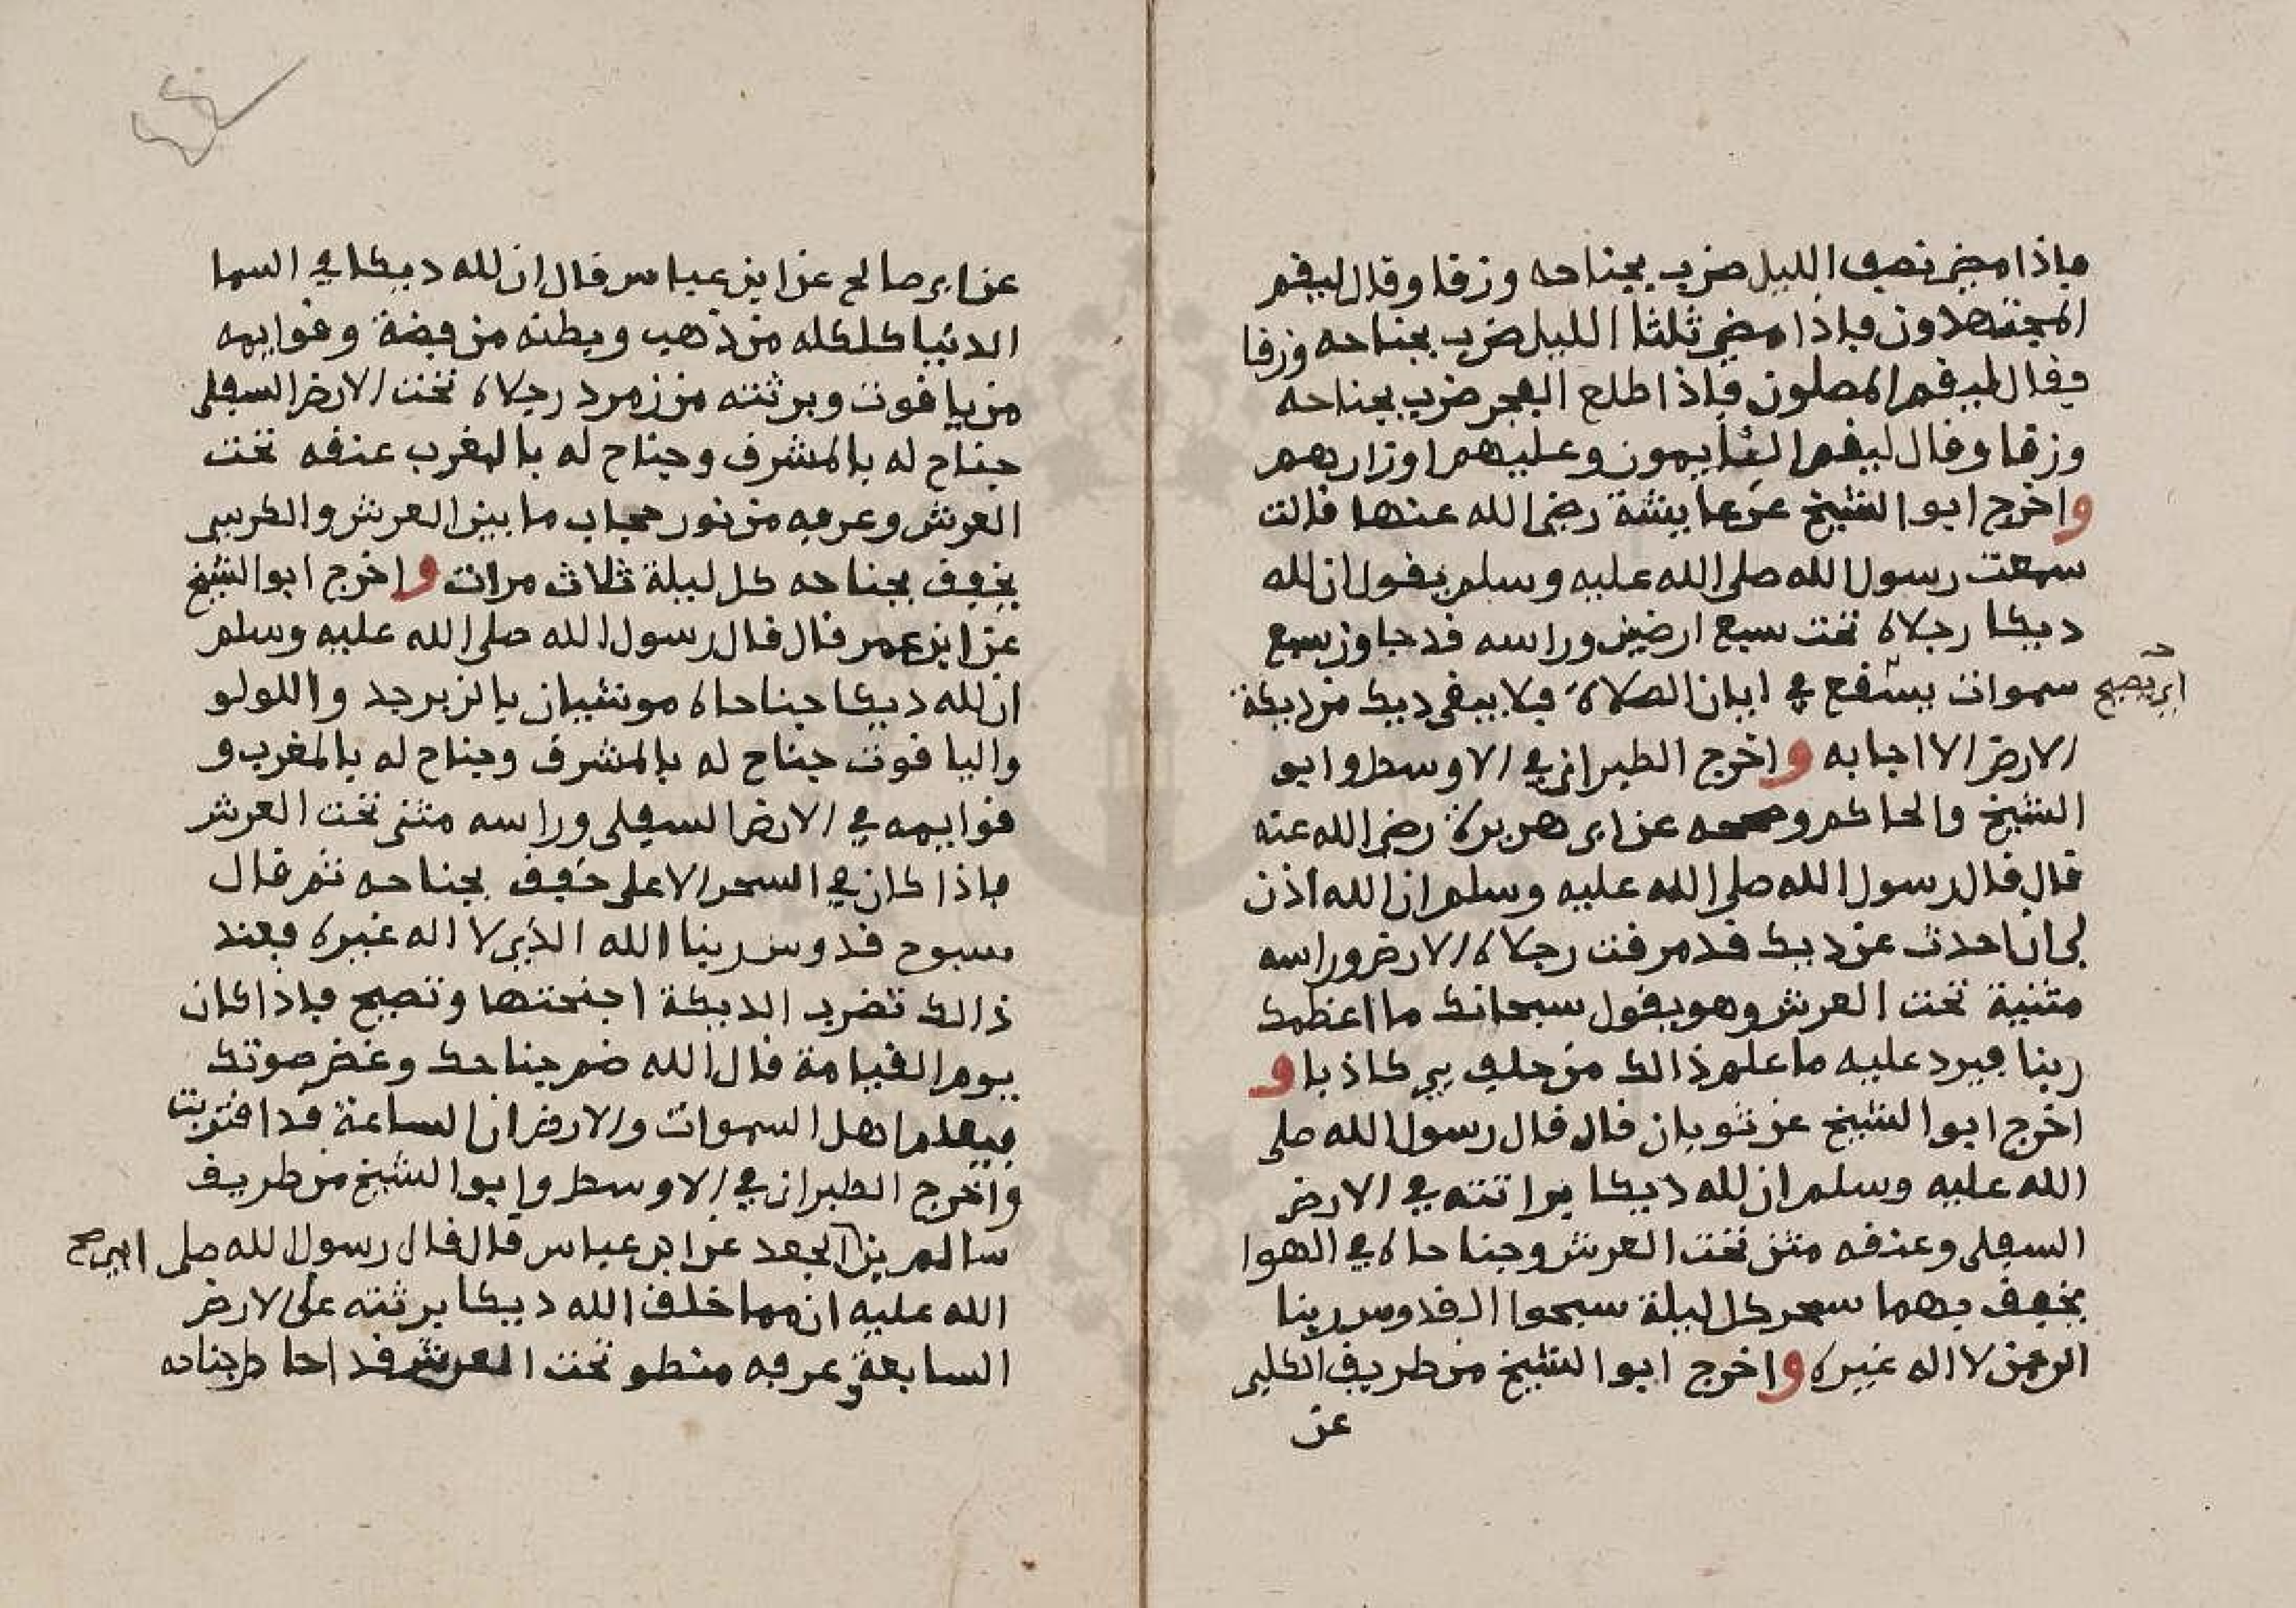 فاذا مضى نصف الليل ضرب بجناحه وزقا وقال ليقم
المجتهدون فاذا مضى ثلثا الليل ضرب بجناحه وزقا
فقال ليقم المصلون فاذا طلع الفجر ضرب بجناحه
وزقا وقال ليقم النايمون وعليهم اوزارهم
واخرج ابوا الشيخ عن عايشة رضي الله عنها قالت
سمعت رسول الله صلى الله عليه وسلم يقول ان لله
ديكا رجلاه تحت سبع ارضين وراسه قد جاوز سبع
سموات يسقع في ابان الصلاة فلا يبقى ديك من ديكة
اي يصيح
الارض الا اجابه واخرج الطبراني في الاوسط وابو
الشيخ والحاكم وصححه عن ابي هريرة رضي الله عنه
قال قال رسول الله صلى الله عليه وسلم ان الله اذن
لي ان احدث عن ديك قد مرقت رجلاه الارض وراسه
مثنية تحت العرش وهو يقول سبحانك ما اعظمك
ربنا فيرد عليه ما علم ذالك من حلف بي كاذبا و
اخرج ابوا الشيخ عن ثوبان قال قال رسول الله صلى
الله عليه وسلم ان لله ديكا براثنه في الارض
السفلى وعنقه مثن تحت العرش وجناحاه في الهوا
يخفق بهما سحر كل ليلة سبحوا القدوس ربنا
الرحمن لا اله غيره واخرج ابوا الشيخ من طريق الكلبي
عن
عن ابي صالح عن ابن عباس قال ان لله ديكا في السما
الدنيا كلكله من ذهب وبطنه من فضة وقوايمه
من ياقوت وبرثنه من زمرد رجلاه تحت الارض السفلى
جناح له بالمشرق وجناح له بالمغرب عنقه تحت
العرش وعرفه من نور حجاب ما بين العرش والكرسي
يخفق بجناحه كل ليلة ثلاث مرات واخرج ابوا الشيخ
عن ابن عمر قال قال رسول الله صلى الله عليه وسلم
ان لله ديكا جناحاه موشيان بالزبرجد واللولو
والياقوت جناح له بالمشرق وجناح له بالمغرب و
قوايمه في الارض السفلى وراسه مثنى تحت العرش
فاذا كان في السحر الاعلى خفق بجناحه ثم قال
سبوح قدوس ربنا الله الذي لا اله غيره فعند
ذالك تضرب الديكة اجنحتها وتصيح فاذا كان
يوم القيامة قال الله ضم جناحك وغض صوتك
فيعلم اهل السموات والارض ان الساعة قد اقتربت
واخرج الطبراني في الاوسط وابوا الشيخ من طريق
سالم بن الجعد عن ابن عباس قال قال رسول الله صلى
الله عليه ان مما خلق الله ديكا برثنه على لارض
السابعة وعرفه منطو تحت العرش قد احاط جناحه